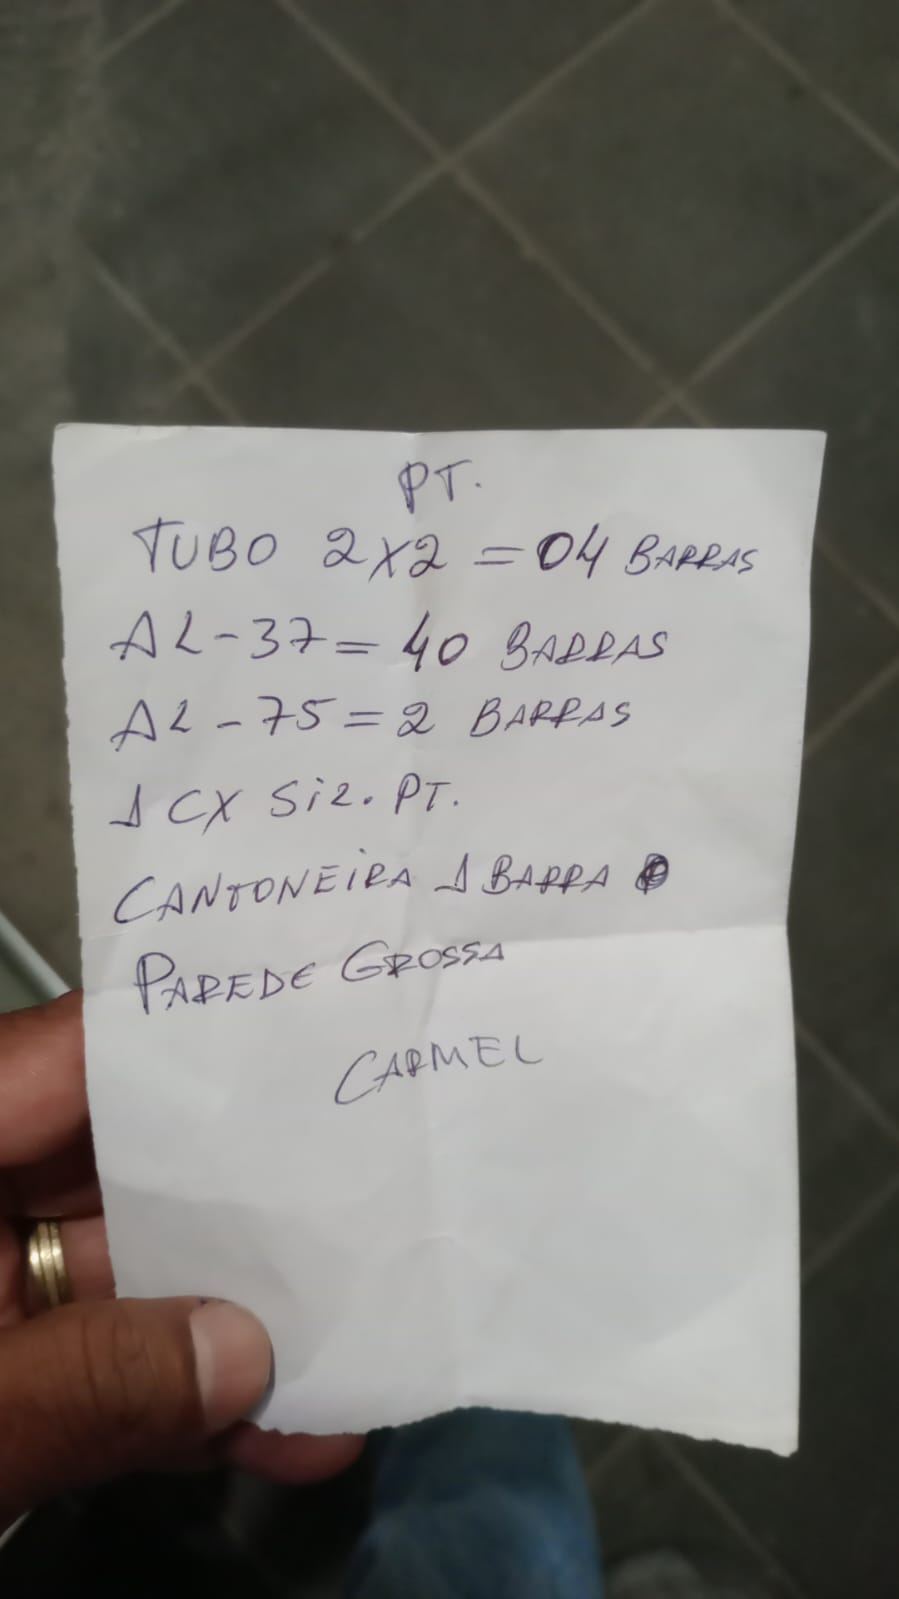 PT.
TUBO 2X2 = 04 BARRAS
AL-37 = 40 BARRAS
AL-75 = 2 BARRAS
1 CX Sil. PT.
CANTONEiRA 1 BARRA
PAREDE GROSSA
CARMEL